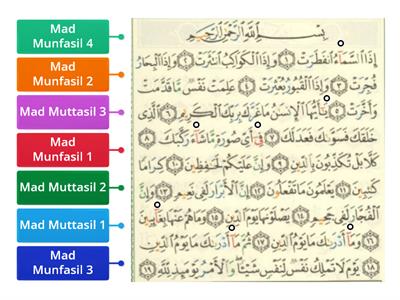 Mad
Munfasil 4
Mad
Munfasil 2
Mad Muttasil 3
Mad
Munfasil 1
Mad Muttasil 2
Mad Muttasil 1
Mad
Munfasil 3
بِسْمِ ٱللَّهِ ٱلرَّحْمَٰنِ ٱلرَّحِيمِ
إِذَا ٱلسَّمَآءُ ٱنفَطَرَتْ ١ وَإِذَا ٱلْكَوَاكِبُ ٱنتَثَرَتْ ٢ وَإِذَا ٱلْبِحَارُ
فُجِّرَتْ ٣ وَإِذَا ٱلْقُبُورُ بُعْثِرَتْ ٤ عَلِمَتْ نَفْسٌ مَّا قَدَّمَتْ
وَأَخَّرَتْ ٥ يَٰٓأَيُّهَا ٱلْإِنسَٰنُ مَا غَرَّكَ بِرَبِّكَ ٱلْكَرِيمِ ٦ ٱلَّذِى
خَلَقَكَ فَسَوَّىٰكَ فَعَدَلَكَ ٧ فِىٓ أَىِّ صُورَةٍ مَّا شَآءَ رَكَّبَكَ ٨
كَلَّا بَلْ تُكَذِّبُونَ بِٱلدِّينِ ٩ وَإِنَّ عَلَيْكُمْ لَحَٰفِظِينَ ١٠ كِرَامًا
كَٰتِبِينَ ١١ يَعْلَمُونَ مَا تَفْعَلُونَ ١٢ إِنَّ ٱلْأَبْرَارَ لَفِى نَعِيمٍ ١٣ وَإِنَّ
ٱلْفُجَّارَ لَفِى جَحِيمٍ ١٤ يَصْلَوْنَهَا يَوْمَ ٱلدِّينِ ١٥ وَمَا هُمْ عَنْهَا بِغَآئِبِينَ
١٦ وَمَآ أَدْرَىٰكَ مَا يَوْمُ ٱلدِّينِ ١٧ ثُمَّ مَآ أَدْرَىٰكَ مَا يَوْمُ ٱلدِّينِ
١٨ يَوْمَ لَا تَمْلِكُ نَفْسٌ لِّنَفْسٍ شَيْـًٔا وَٱلْأَمْرُ يَوْمَئِذٍ لِّلَّهِ ١٩